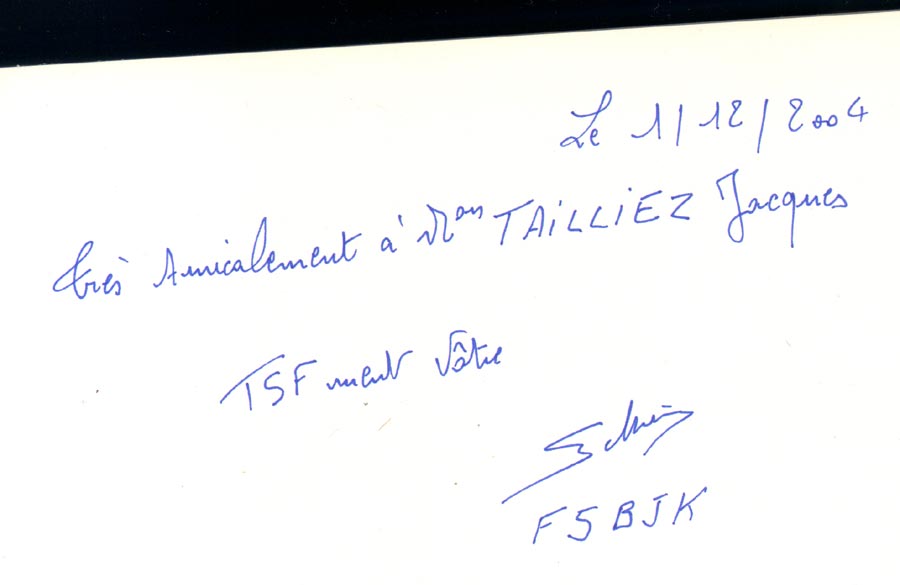 Le 1/12/2004
très Amicalement à Mon TAILLIEZ Jacques
TSF ment Vôtre
F5BJK